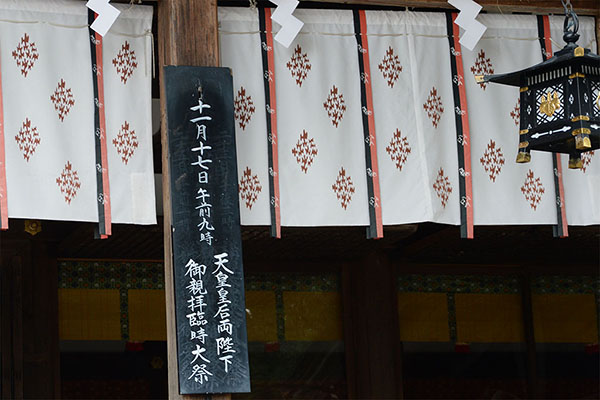 十一月十七日 午前九時
天皇皇后両陛下
御親拝臨時大祭